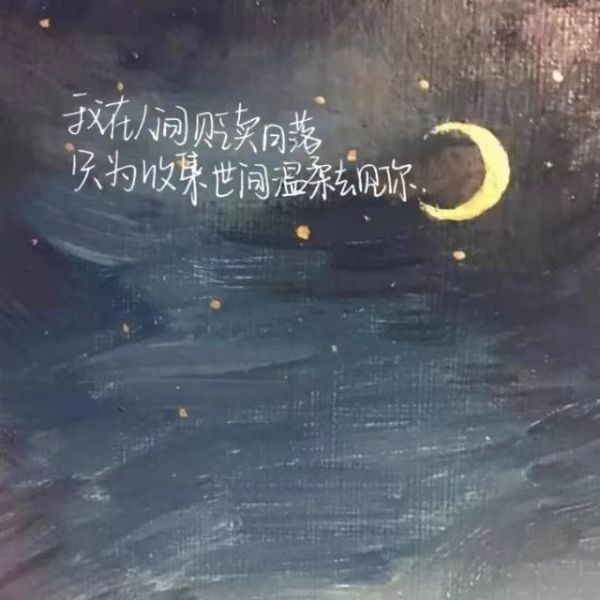 我在人间贩卖日落
只为收集世间温柔去见你..